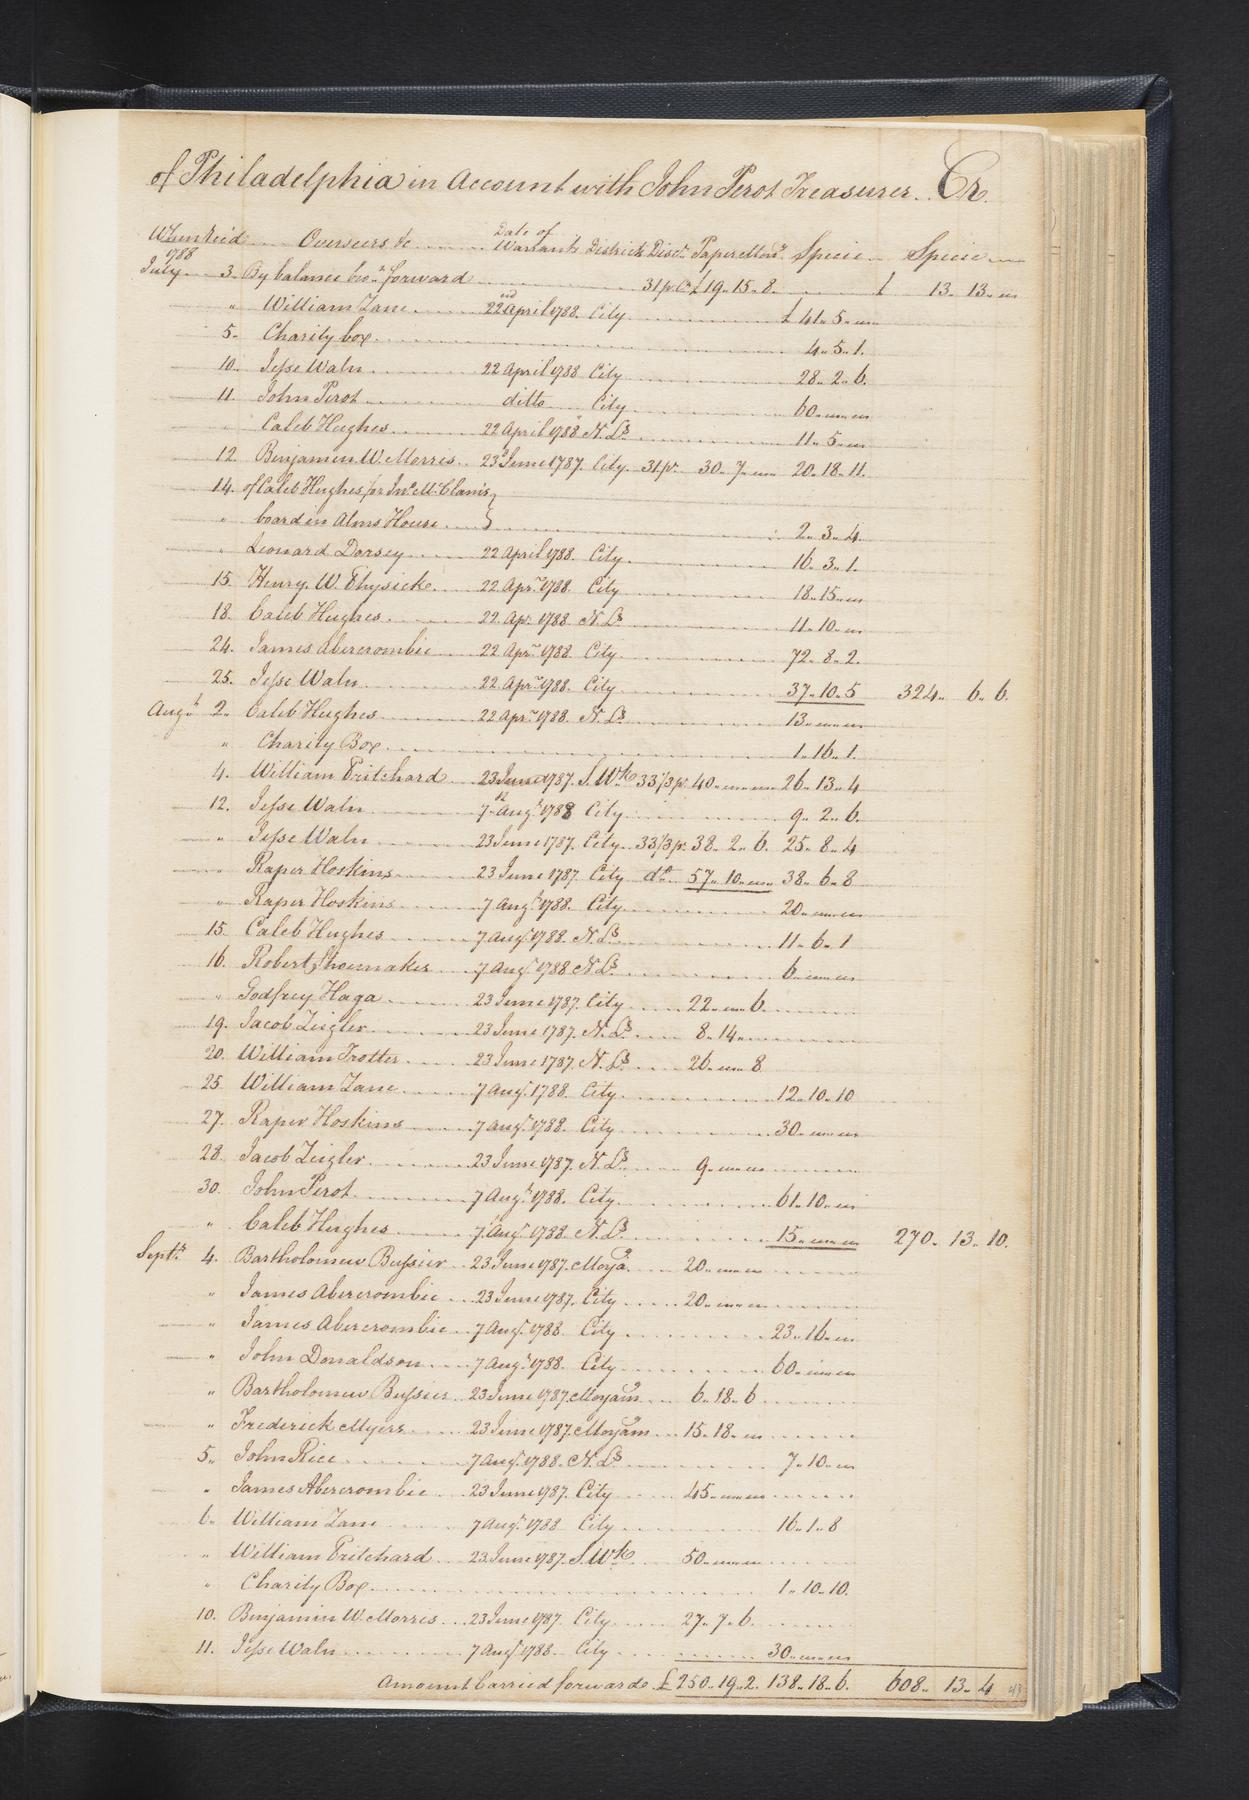 of Philadelphia in Account with John Perot Treasurer. Cr.
When Rec'd Overseers &c Date of Warrants District Disct. Paper Mony. Specie Specie
1788
July 3. By balance bro.t forward 31 p Ct £19..15..8. £ 13..13..
" William Zane 22nd April 1788. City £ 41..5..
5. Charity box 4..5..1.
10. Jesse Waln 22 April 1788 City 28..2..6.
11. John Perot ditto City 60..
" Caleb Hughes 22 April 1788 N. Ls. 11..5..
12. Benjamin W. Morris 23d June 1787. City 31 pr. 30..7.. 20..18..11.
14. of Caleb Hughes for Jno. McClanis
" board in Alms House 2..3..4.
" Leonard Dorsey 22 April 1788. City 16..3..1.
15. Henry. W. Physick 22 Apr. 1788. City 18..15..
18. Caleb Hughes 22. Apr. 1788 N. Ls. 11..10..
24. James Abercrombie 22 Apr. 1788. City 72..8..2.
25. Jesse Waln 22 Apr. 1788. City 37..10..5 324.. 6..6.
Augt. 2.. Caleb Hughes 22 Apr. 1788 N. Ls. 13..
" Charity Box 1..16..1.
4. William Pritchard 23 June 1787. S. Wk. 33 1/3 pr. 40.. 26..13..4
12. Jesse Waln 7th Augt. 1788 City 9..2..6.
" Jesse Waln 23 June 1787. City 33 1/3 pr. 38..2..6. 25..8..4
" Raper Hoskins 23 June 1787. City do. 57..10.. 38..6..8
" Raper Hoskins 7 Augt. 1788. City 20..
15. Caleb Hughes 7 Augt. 1788. N. Ls. 11..6..1
16. Robert Shoemaker 7 Augt. 1788 N. Ls. 6..
" Godfrey Haga 23 June 1787. City 22.. 6.
19. Jacob Zeigler 23 June 1787. N. Ls. 8..14..
20. William Trotter 23 June 1787. N. Ls. 26.. 8
25. William Zane 7 Augt. 1788. City 12..10..10
27. Raper Hoskins 7 Augt. 1788. City 30..
28. Jacob Zeigler 23 June 1787. N. Ls. 9..
30. John Perot 7 Augt. 1788. City 61..10..
" Caleb Hughes 7 Augt. 1788. N. Ls. 15.. 270..13..10.
Septr. 4. Bartholomew Bussier 23 June 1787. Moya. 20..
" James Abercrombie 23 June 1787. City 20..
" James Abercrombie 7 Augt. 1788. City 23..16..
" John Donaldson 7 Augt. 1788. City 60..
" Bartholomew Bussier 23 June 1787. Moyam 6..18..6
" Frederick Myers 23 June 1787. Moyam 15..18..
5.. John Rice 7 Augt. 1788. N. Ls. 7..10..
" James Abercrombie 23 June 1787. City 45..
6.. William Zane 7 Augt. 1788 City 16..1..8
" William Pritchard 23 June 1787. S. Wk. 50..
" Charity Box 1..10..10.
10. Benjamin W. Morris 23 June 1787. City 27..7..6.
11. Jesse Waln 7 Augt. 1788. City 30..
Amount Carried forwards £250..19..2. 138..18..6. 608..13..4